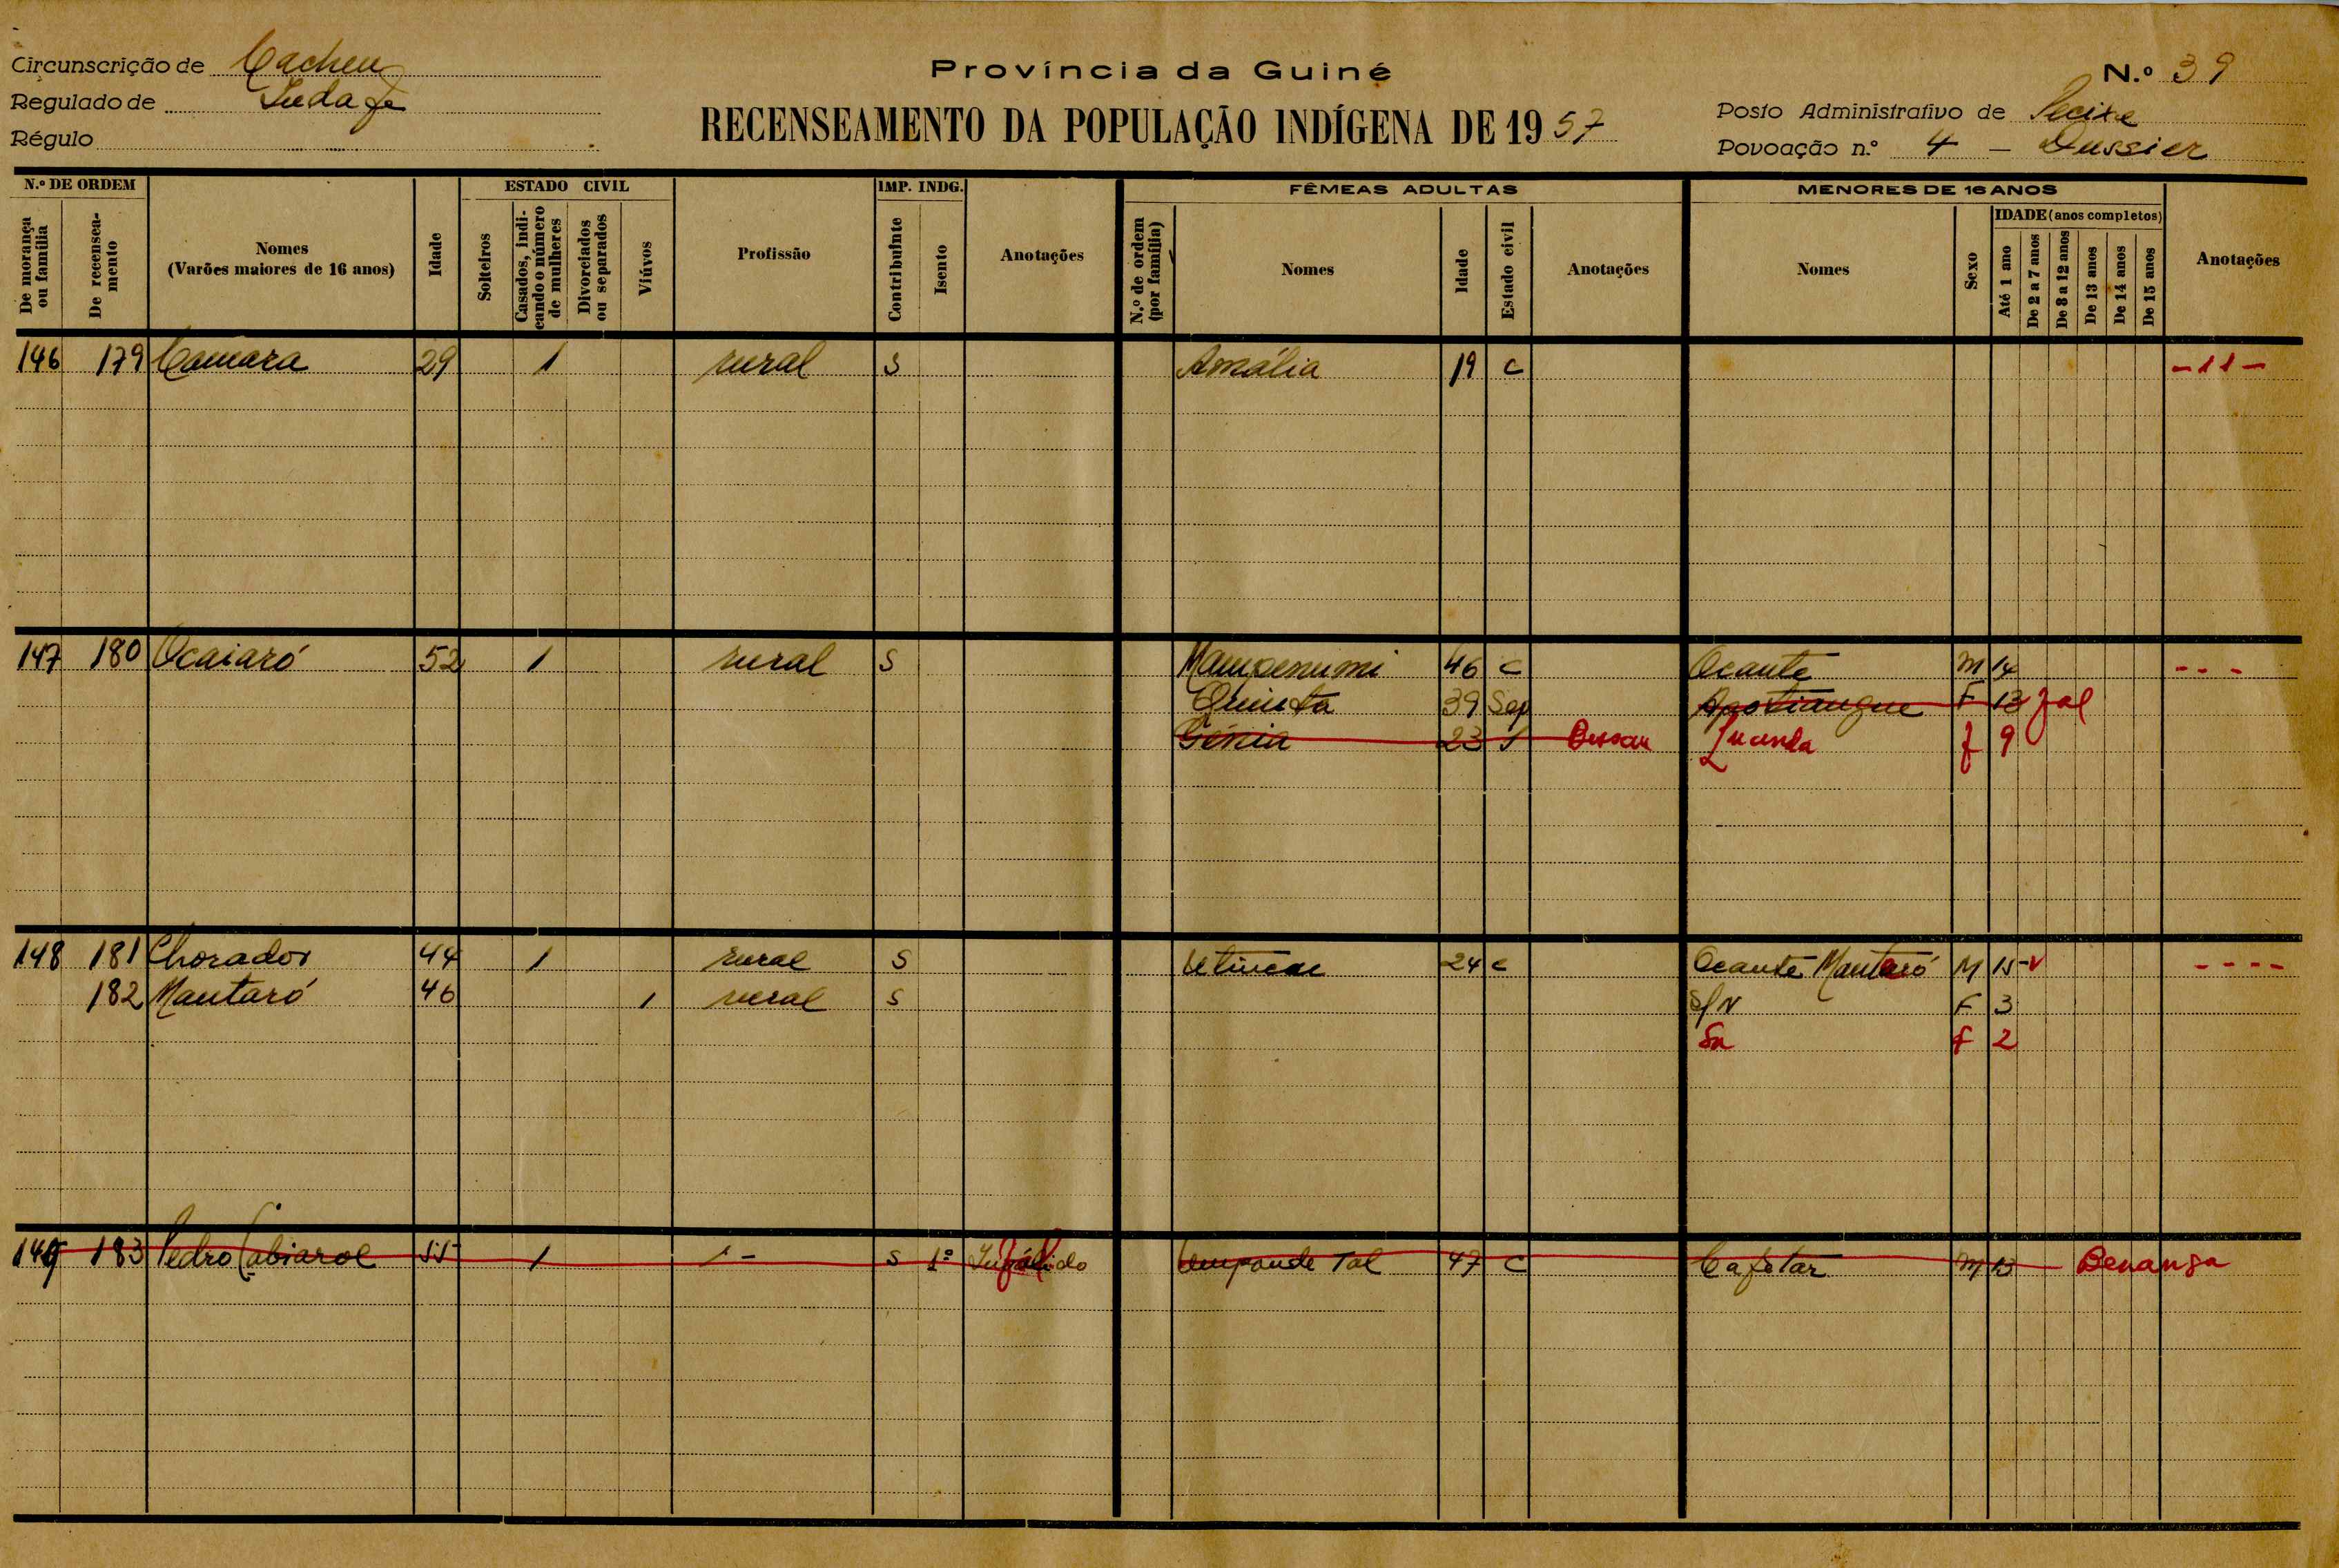 Circunscrição de Cacheu
Regulado de
Régulo
Província da Guiné
RECENSEAMENTO DA POPULAÇÃO INDÍGENA DE 1957
N.º 39
Posto Administrativo de Pecixe
Povoação n.º 4 – Dussier
N.º DE ORDEM
De morança ou família
De recenseamento
Nomes
(Varões maiores de 16 anos)
Idade
ESTADO CIVIL
Solteiros
Casados, indicando o número de mulheres
Divorciados ou separados
Viúvos
Profissão
IMP. INDG.
Contribuinte
Isento
Anotações
FÊMEAS ADULTAS
N.º de ordem (por família)
Nomes
Idade
Estado civil
Anotações
MENORES DE 16 ANOS
Nomes
Sexo
IDADE (anos completos)
Até 1 ano
De 2 a 7 anos
De 8 a 12 anos
De 13 anos
De 14 anos
De 15 anos
Anotações
146 179 Camara 29 1 rural S Amália 19 C - 11 -
147 180 Ocaiaró 52 1 rural S Mampenumi 46 C Ocante M 14 - - -
Quinta 39 Sep Apotiangue F 13 fal
Génia 23 S Bissau Luanda f 9
148 181 Chorador 44 1 rural S 24 C Ocante Mantaró M 15 v - - - -
182 Mantaró 46 1 rural S S/N F 3
Sn f 2
149 183 Pedro Cabiarol 55 1 1 - S 1º Tal 47 C Cafotar M 13